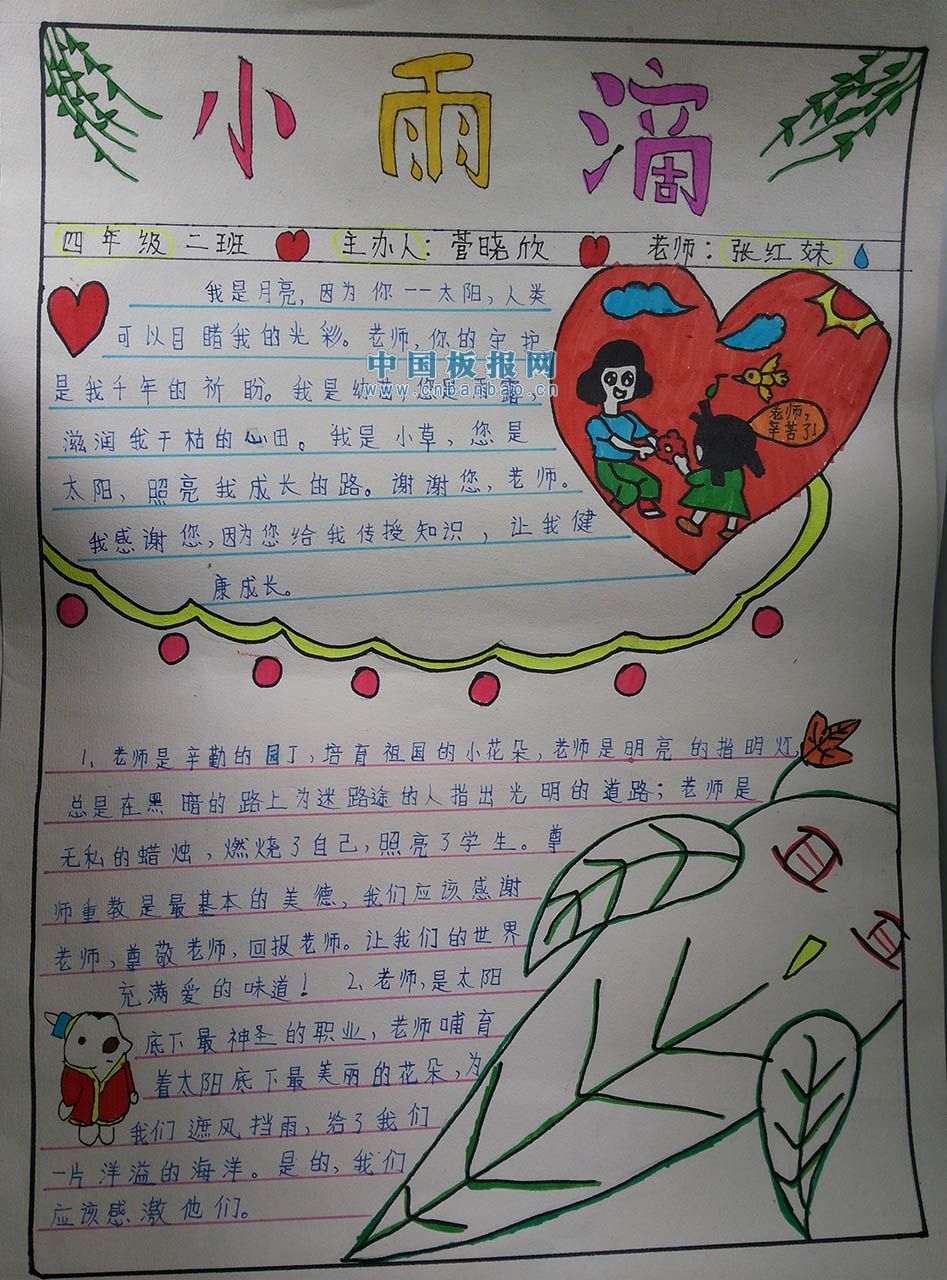 小雨滴
四年级二班 主办人:菅晓欣 老师:张红妹
我是月亮,因为你--太阳,人类
可以目睹我的光彩。老师,你的守护
中国板报网
www.cnbanbao.cn
是我千年的祈盼。我是幼苗,您是雨露,
滋润我干枯的心田。我是小草,您是
太阳,照亮我成长的路。谢谢您,老师。
我感谢您,因为您给我传授知识,让我健
康成长。
老师,
辛苦了!
1、老师是辛勤的园丁,培育祖国的小花朵,老师是明亮的指明灯,
总是在黑暗的路上为迷路途的人指出光明的道路;老师是
无私的蜡烛,燃烧了自己,照亮了学生。尊
师重教是最基本的美德,我们应该感谢
老师,尊敬老师,回报老师。让我们的世界
充满爱的味道! 2、老师,是太阳
底下最神圣的职业,老师哺育
着太阳底下最美丽的花朵,为
我们遮风挡雨,给了我们
一片洋溢的海洋。是的,我们
应该感激他们。